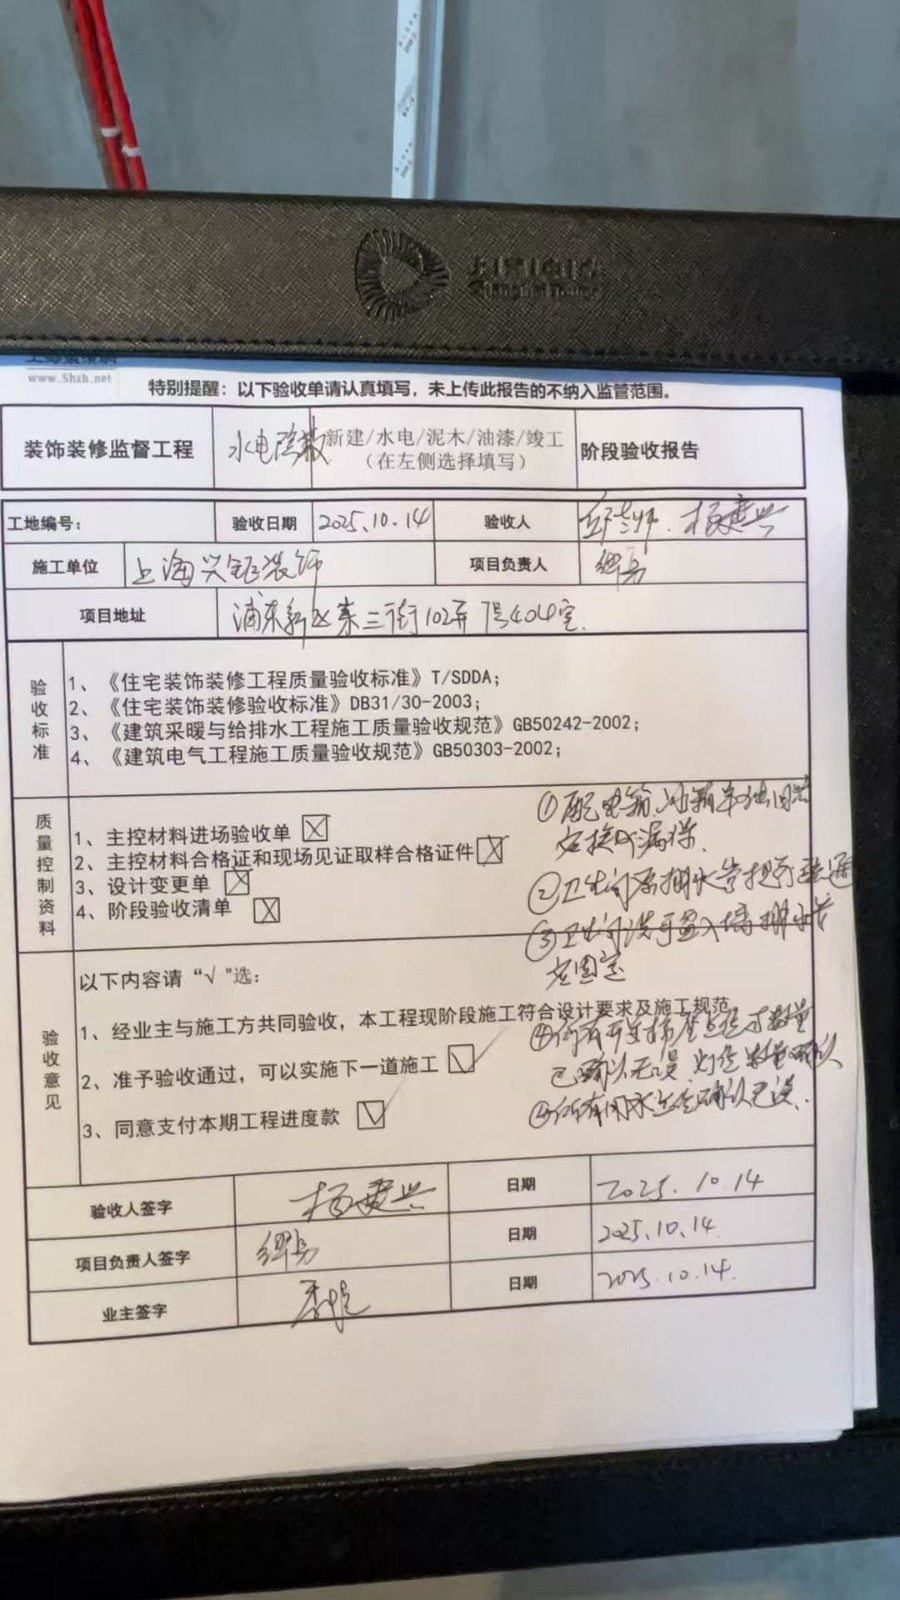 www.Shzh.net
特别提醒：以下验收单请认真填写，未上传此报告的不纳入监管范围。
装饰装修监督工程 水电隐蔽 新建/水电/泥木/油漆/竣工 阶段验收报告
（在左侧选择填写）
工地编号： 验收日期 2025.10.14 验收人 杨建兴
施工单位 上海兴钜装饰 项目负责人
项目地址 浦东新区东三街102弄7号404室.
验收标准
1、《住宅装饰装修工程质量验收标准》T/SDDA；
2、《住宅装饰装修验收标准》DB31/30-2003；
3、《建筑采暖与给排水工程施工质量验收规范》GB50242-2002；
4、《建筑电气工程施工质量验收规范》GB50303-2002；
质量控制资料
1、主控材料进场验收单
2、主控材料合格证和现场见证取样合格证件
3、设计变更单
4、阶段验收清单
①配电箱，冰箱单独回路
应接漏保.
②卫生间原排水管
③卫生间洗手盆入墙排水管
应固定
验收意见
以下内容请“√”选：
1、经业主与施工方共同验收，本工程现阶段施工符合设计要求及施工规范
2、准予验收通过，可以实施下一道施工 ✓
3、同意支付本期工程进度款 ✓
④所有开关插座点位于数量
已确认无误 灯位数量确认
⑤所有用水点位确认无误.
验收人签字 杨建兴 日期 2025.10.14
项目负责人签字 日期 2025.10.14
业主签字 日期 2025.10.14.